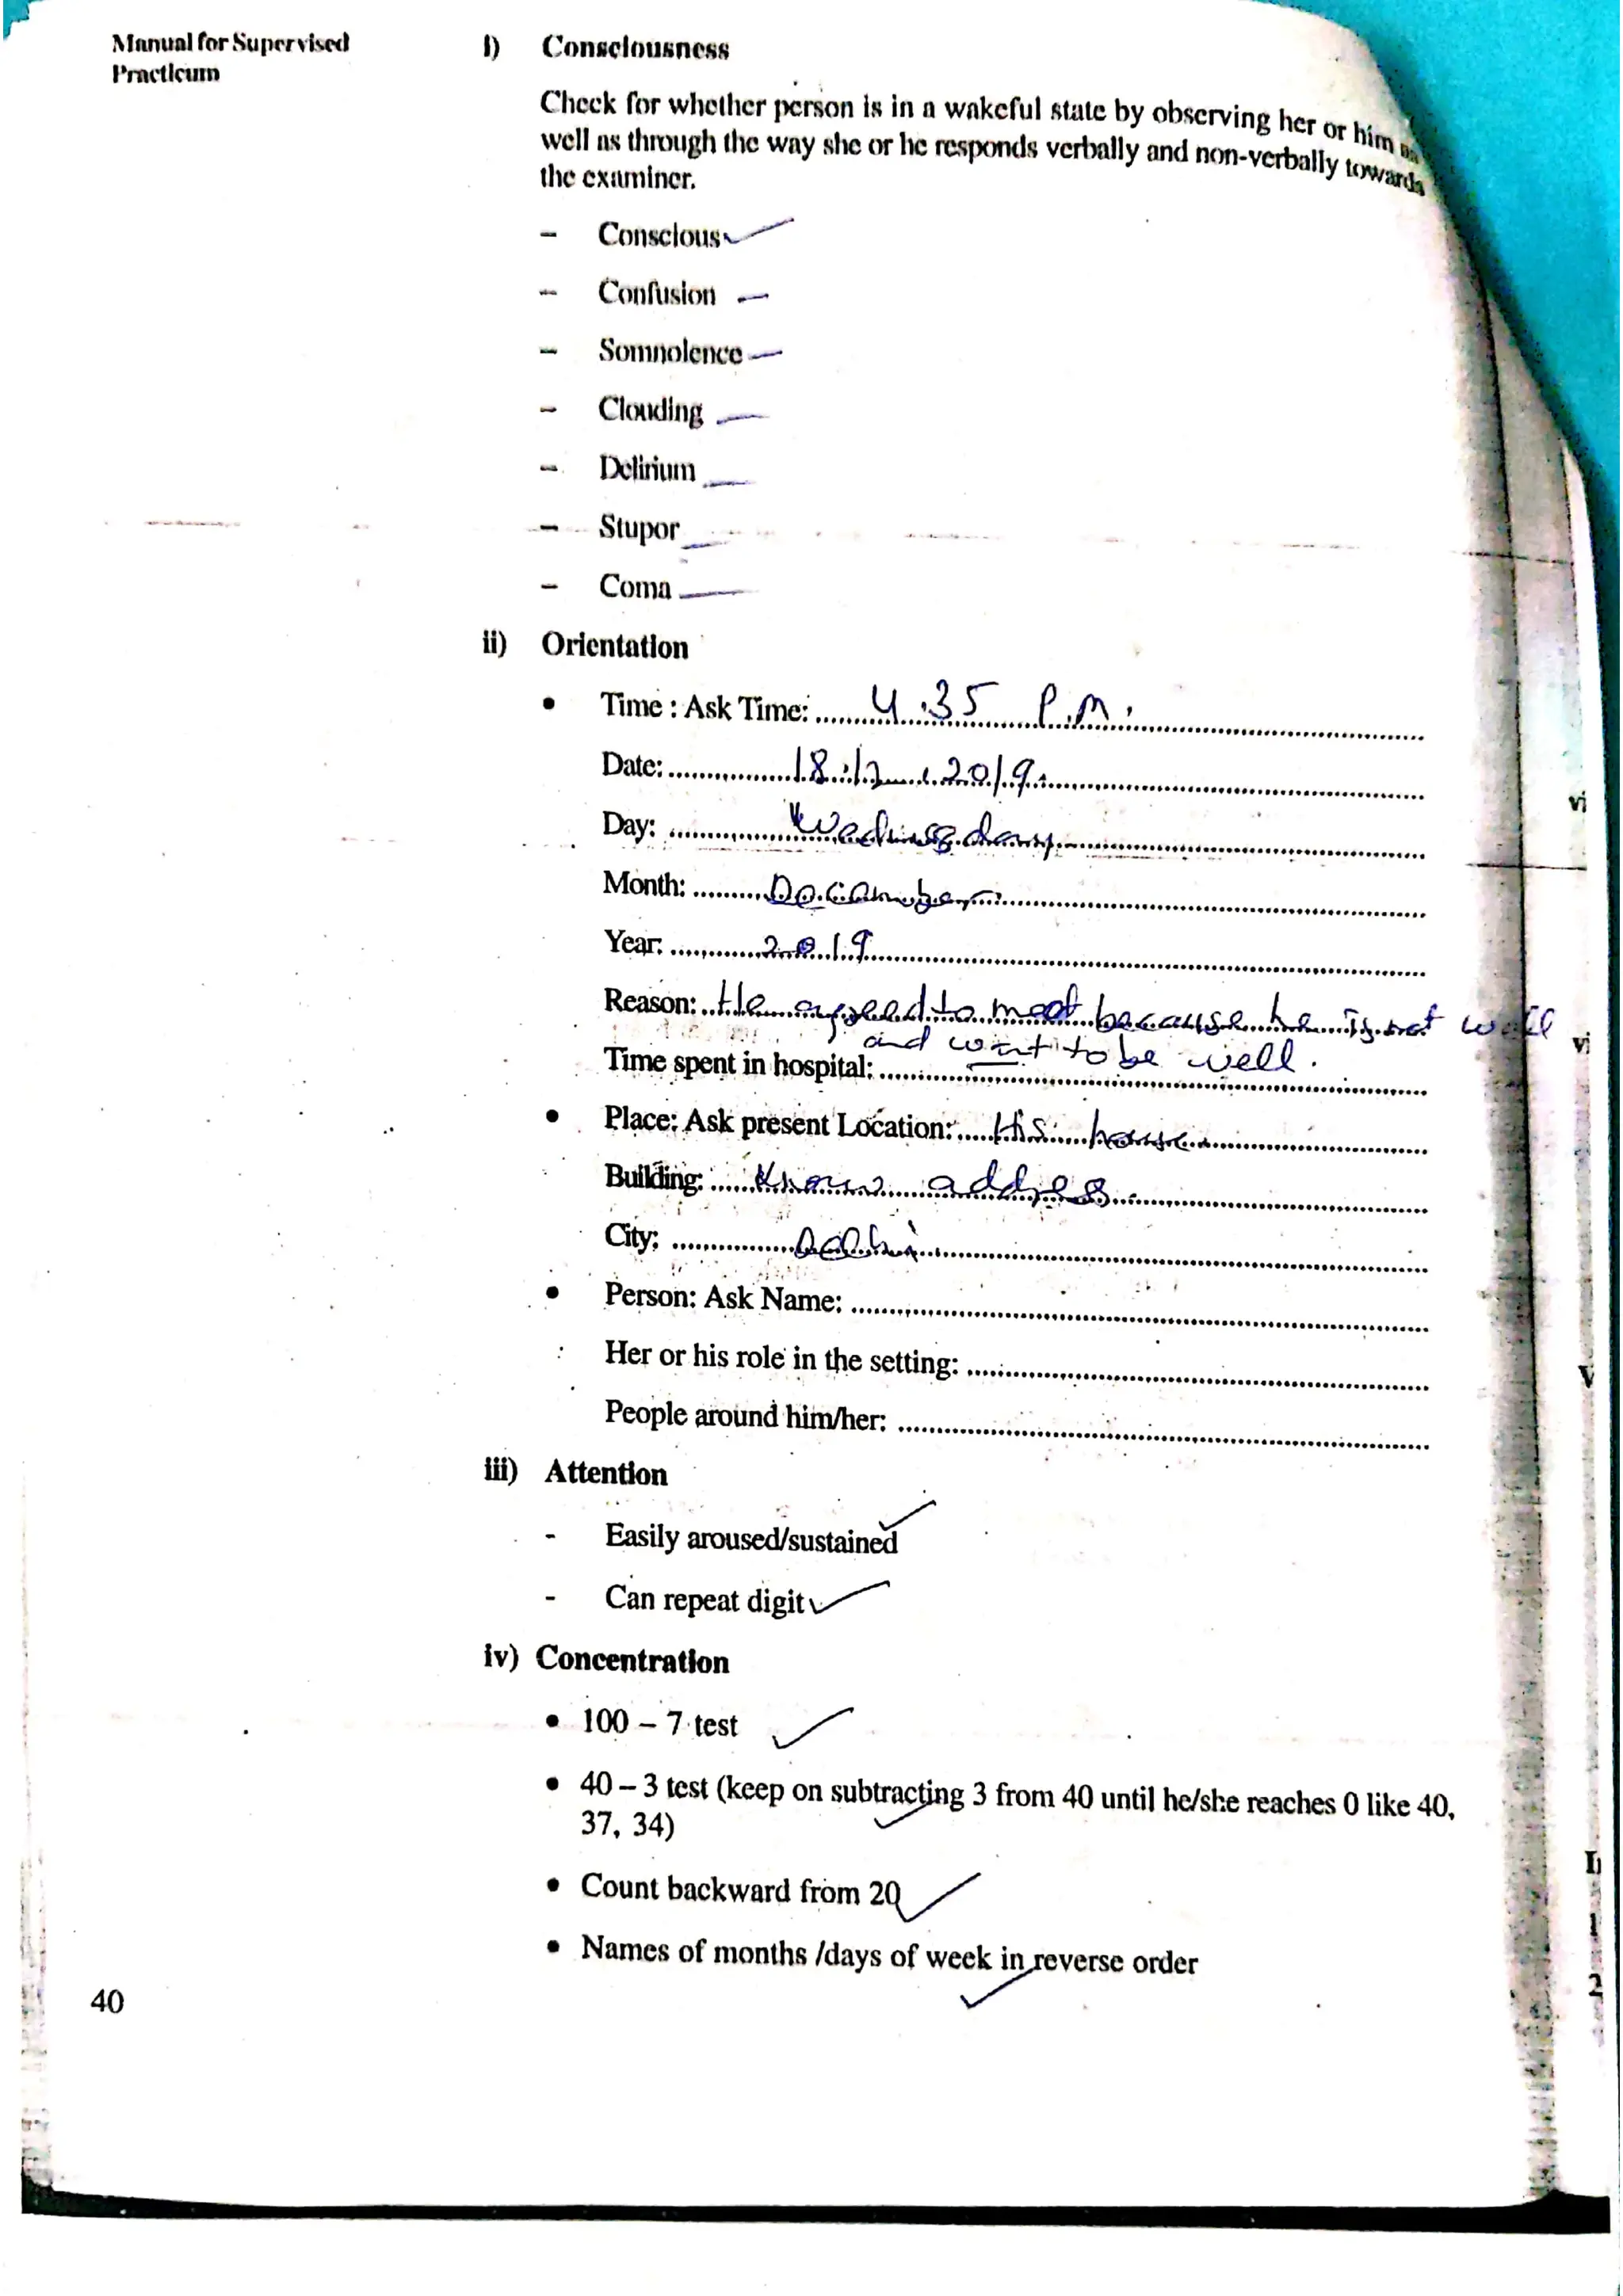 Manual for Supervised
Practicum
i) Consciousness
Check for whether person is in a wakeful state by observing her or him as
well as through the way she or he responds verbally and non-verbally towards
the examiner.
– Conscious ✓
– Confusion —
– Somnolence —
– Clouding —
– Delirium —
– Stupor —
– Coma —
ii) Orientation
• Time : Ask Time: 4.35 P.M.
Date: 18.12.2019.
Day: Wednesday
Month: December
Year: 2019
Reason: He agreed to meet because he is not well
and want to be well.
Time spent in hospital:
• Place: Ask present Location: His house
Building: Know address
City: Delhi
• Person: Ask Name:
Her or his role in the setting:
People around him/her:
iii) Attention
- Easily aroused/sustained ✓
- Can repeat digit ✓
iv) Concentration
• 100 – 7 test ✓
• 40 – 3 test (keep on subtracting 3 from 40 until he/she reaches 0 like 40,
37, 34) ✓
• Count backward from 20 ✓
• Names of months /days of week in reverse order ✓
40